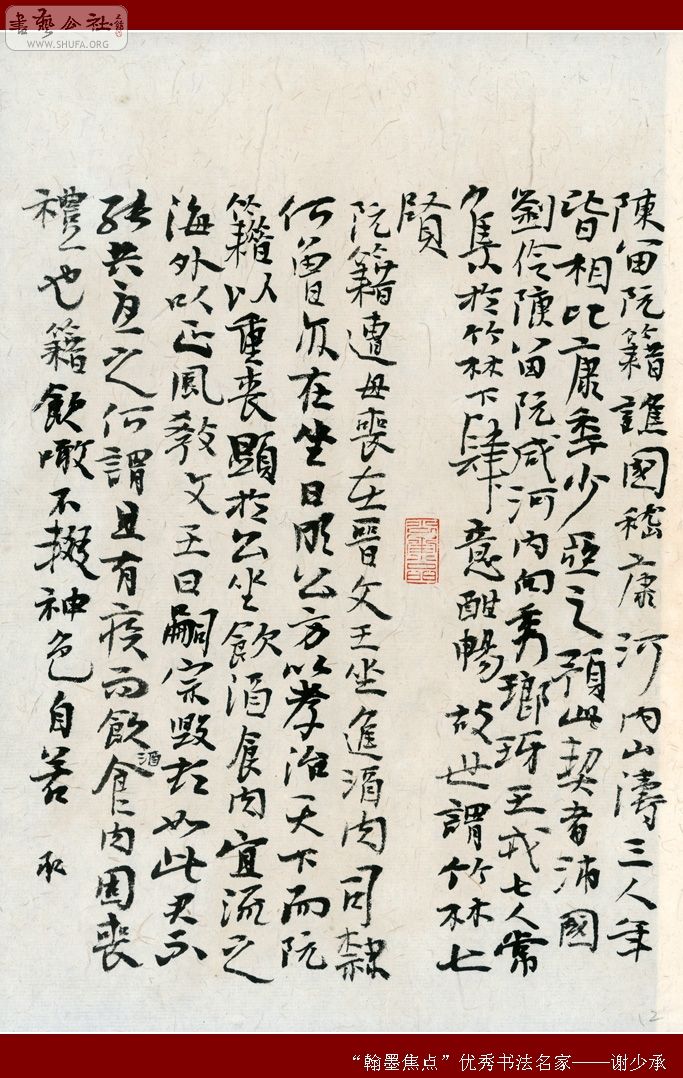 書藝公社
WWW.SHUFA.ORG
陳留阮籍譙國嵇康河內山濤三人年
皆相比康年少亞之預此契者沛國
劉伶陳留阮咸河內向秀瑯玡王戎七人常
集於竹林下肆意酣暢故世謂竹林七
賢
阮籍遭母喪在晉文王坐進酒肉司隸
何曾亦在坐曰明公方以孝治天下而阮
籍以重喪顯於公坐飲酒食肉宜流之
海外以正風教文王曰嗣宗毀頓如此君不
能共憂之何謂且有疾而飲酒食肉固喪
禮也籍飲噉不輟神色自若 承
2
“翰墨焦点”优秀书法名家——谢少承